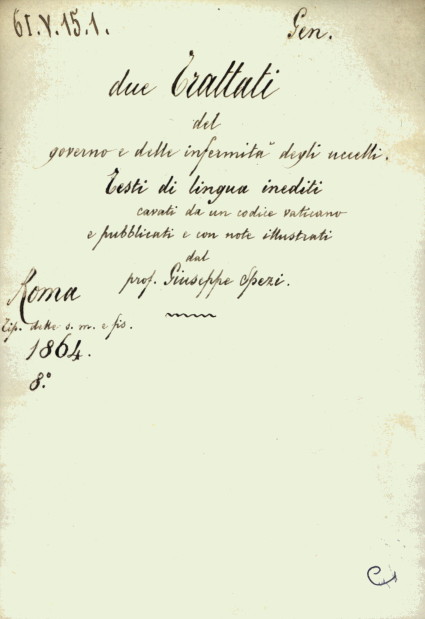 61.V.15.1.
Gen.
due Trattati
del
governo e delle infermità degli uccelli.
Testi di lingua inediti
cavati da un codice vaticano
e pubblicati e con note illustrati
dal
prof. Giuseppe Spezi.
Roma
Tip. delle s. m. e fis.
1864.
8.º